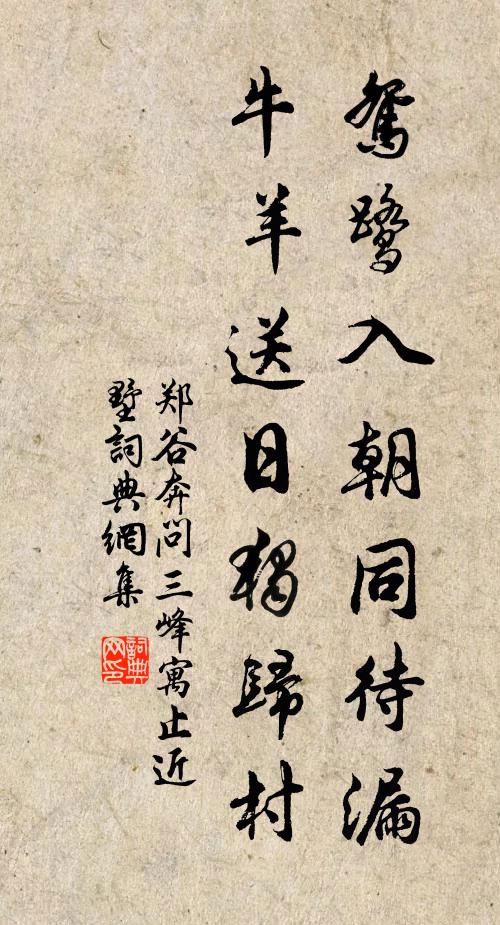 鴛鷺入朝同待漏
牛羊送日獨歸村
郑谷奔問三峰寓止近
墅詞典網集
詞典网印